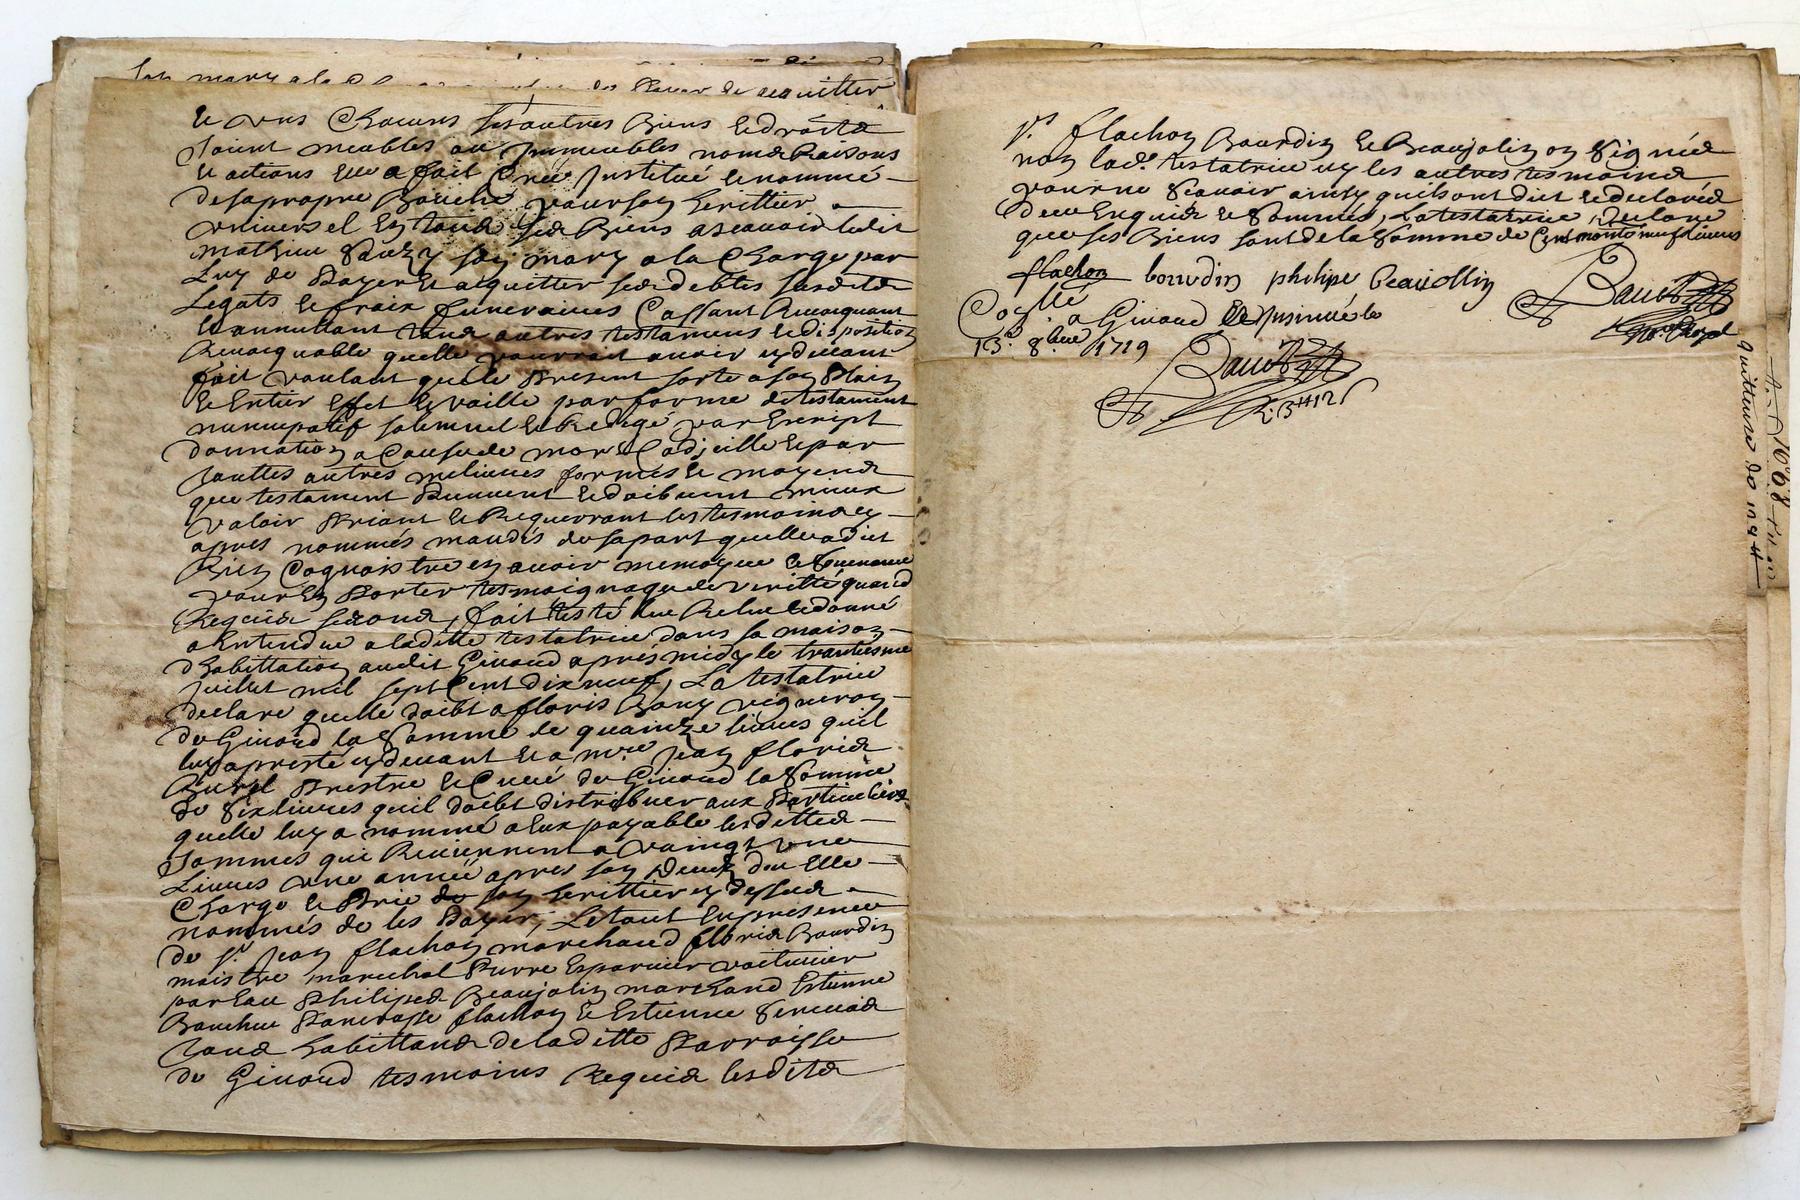 son mary a la de payer de acquitter
et uns chacuns ses autres biens et droits
soient meubles ou immeubles noms Raisons
et actions elle a fait creé Institué et nommé
de sa propre Bouche pour son herittier
universel en tous ses Biens a scavoir ledit
mathieu son mary a la Charge par
Luy de payer et acquitter ses debtes susdits
Legats et fraix funeraires Cassant Revocquant
et annullant tous autres testamens et disposition
Revocquable quelle pourrait avoir cy devant
fait voulant que le present sorte a son plain
et Entier effet et vaille par forme de testament
nuncupatif solemnel et Redigé par Escript
donnation a Cause de mort Codicille et par
touttes autres melieures formes et moyens
que testament peuvent et doibvent mieux
valoir priant et Requerrant les tesmoins cy
apres nommés mandés de sa part quelle a dit
Bien Cognoistre en avoir memoyre et souvenance
pour En porter tesmoignage de verité quand
Requis seront, fait testé leu Releu et donné
a Entendre a laditte testatrice dans sa maison
d'habittation audit Givord aprés midy le trantiesme
Juillet mil sept Cent dix neuf, La testatrice
declare quelle doibt a floris Bony vigneron
de Givord la somme de quainze livres quil
luy a presté cy devant et a mre Jean floris
prestre et Curé de Givord la somme
de six livres quil doibt distribuer aux particuliers
quelle luy a nommé a Eux payable lesdittes
sommes qui Reviennent a vaingt une
Livres une année apres son deced dou Elle
Charge et prie de son herittier cy dessus
nommés de les payer, Le tout En presence
de sr. Jean flachon marchand floris Bourdin
maistre marechal Pierre Esparvier voiturier
par Eau Philipes Beaujolin marchand Estienne
flachon et Estienne
tous habittans de laditte parroisse
de Givord tesmoins Requis lesdits
srs flachon Bourdin et Beaujolin on signés
non lade. testatrice ny les autres tesmoins
pour ne scavoir ainsy quils ont dit et declarés
de ce Enquis et sommés, La testatrice declare
que ses Biens sont de la somme de livres
flachon bourdin philipe beaujollin
Collé a Givord et insinué le
13e. 8bre 1719
1668
quittense de 1744